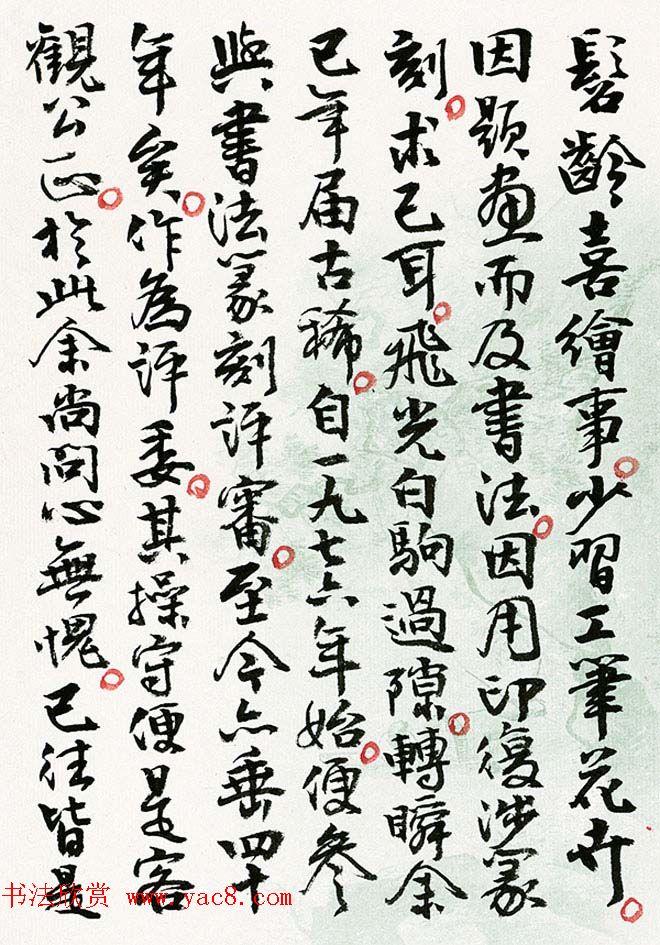 髫齡喜繪事。少習工筆花卉。
因題畫而及書法。因用印復涉篆
刻。求己耳。飛光白駒過隙。轉瞬余
已年届古稀。自一九七六年始。便參
與書法篆刻評審。至今亦垂四十
年矣。作為評委。其操守便是客
觀公正。於此余尚問心無愧。已往皆是
书法欣赏 www.yac8.com